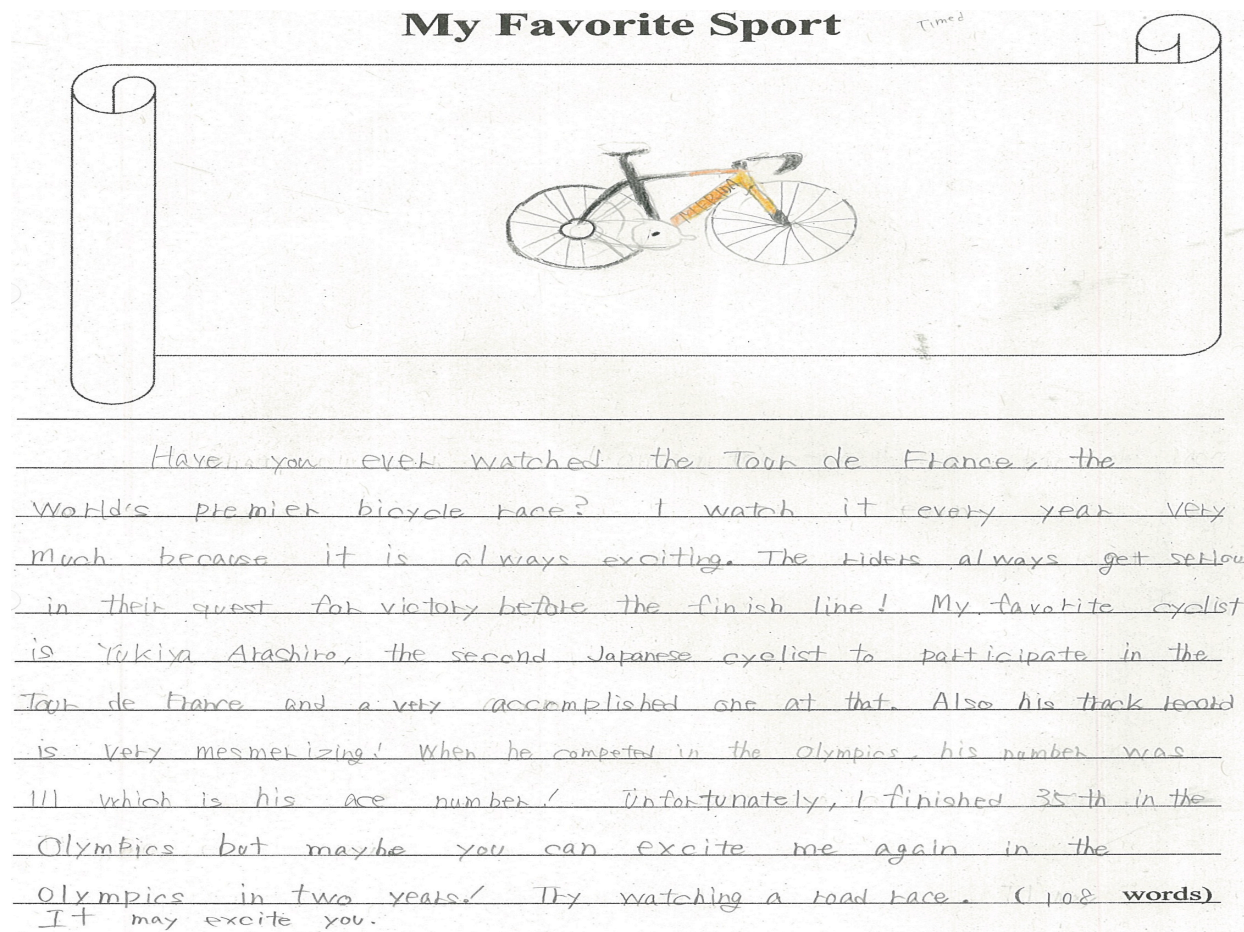 My Favorite Sport
Timed
MERIDA
Have you ever watched the Tour de France, the
World's premier bicycle race? I watch it every year very
much because it is always exciting. The riders always get seriou
in their quest for victory before the finish line! My favorite cyclist
is Yukiya Arashiro, the second Japanese cyclist to participate in the
Tour de France and a very accomplished one at that. Also his track record
is very mesmerizing! When he competed in the Olympics, his number was
111 which is his ace number! Unfortunately, I finished 35th in the
Olympics but maybe you can excite me again in the
Olympics in two years! Try watching a road race. (108 words)
It may excite you.